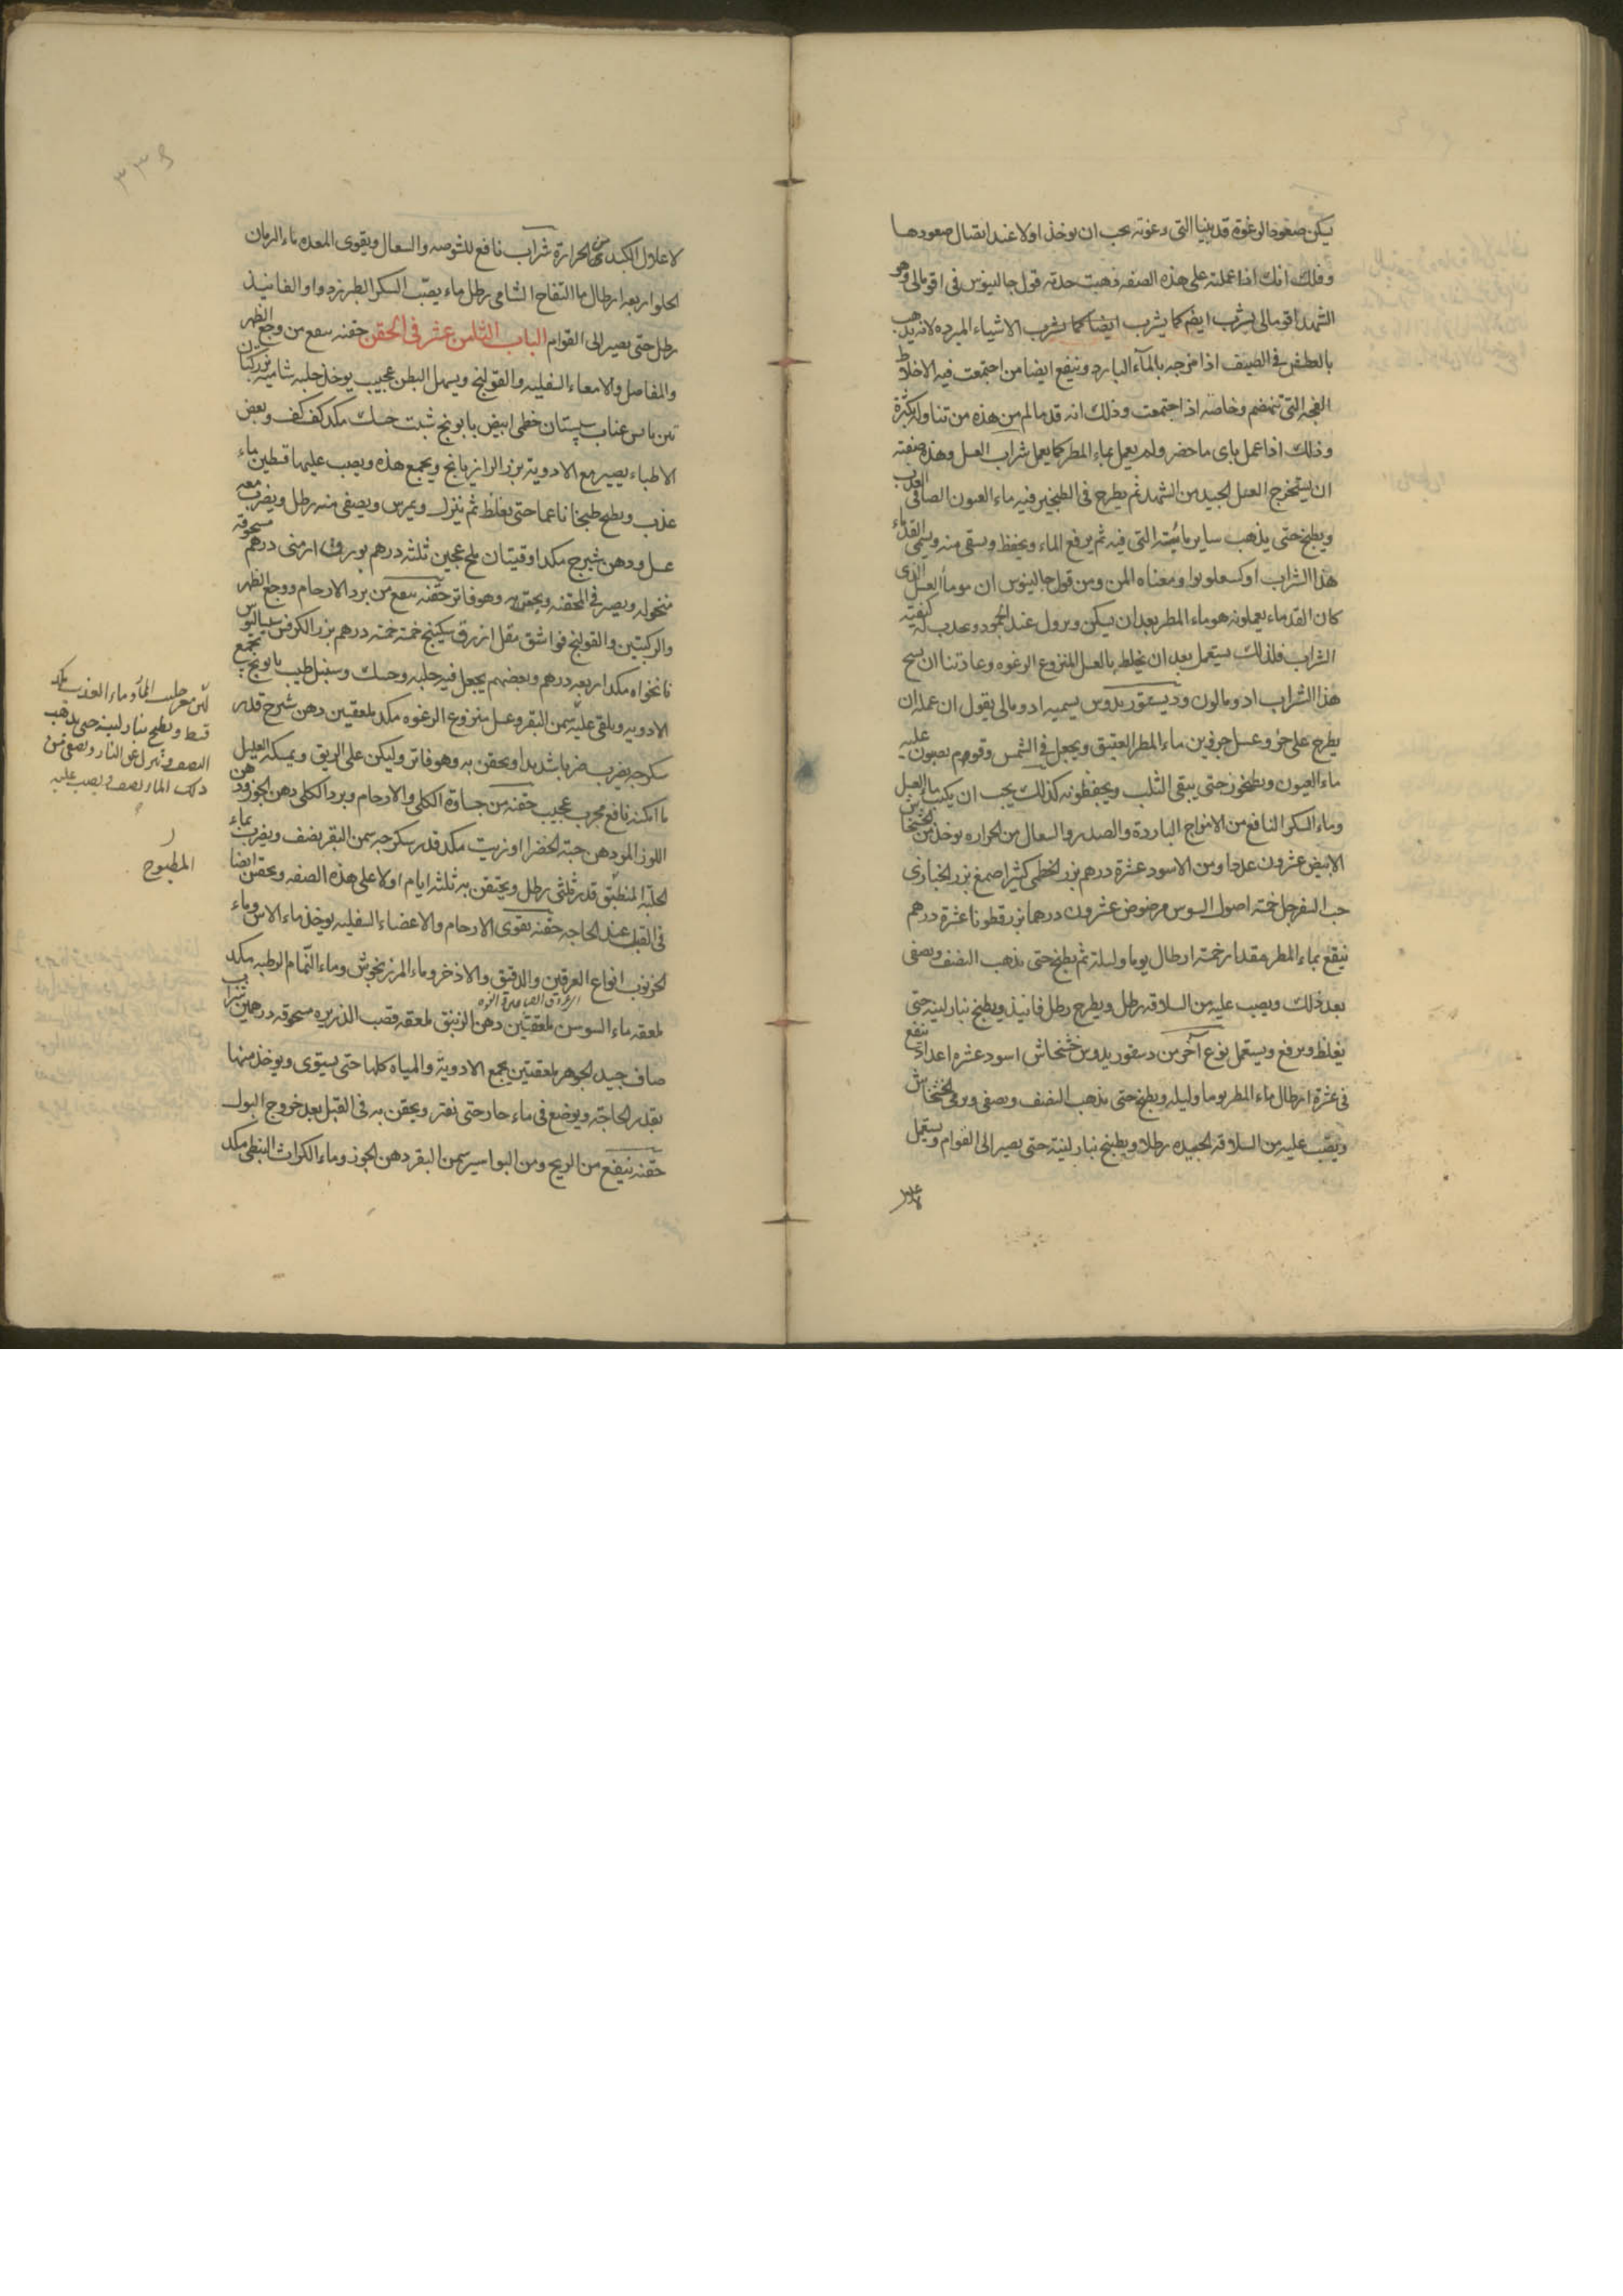 يكن صعود الرغوة قد بينا التى رغوته يجب ان يوخذ اولا عند اتصال صعودها
وذلك انك اذا عملته على هذه الصفه ذهبت حدته قول جالينوس فى اقومالى وهو
الشهد اقومالى يشرب ايضم كما يشرب ايضا كما يشرب الاشياء المبرده لانه يذهب
بالعطش فى الصيف اذا مزجه بالمآء البارد وينفع ايضا من اجتمعت فيه الاخلاط
الفجه التى تنهضم وخاصه اذا اجتمعت وذلك انه قد مالم من هذه من تناوله بكثرة
وذلك اذا عمل باى ما حضر ولم يعمل بماء المطر كما يعمل شراب العسل وهذه صفته
ان يستخرج العسل الجيد من الشهد ثم يطرح فى الطنجير فيه ماء العيون الصافى العذب
ويطبخ حتى يذهب ساير مائيته التى فيه ثم يرفع الماء ويحفظ ويسقى منه ويسمى القدماء
هذا الشراب اوكسعلوبوا ومعناه المن ومن قول جالينوس ان موما العسل الذى
كان القدماء يعملونه هو ماء المطر بعد ان يسكن ويرول عند الجمود ويحدث له كيفيته
الشراب فلذلك يستعمل بعد ان يخلط بالعسل المنزوع الرغوه وعادتنا ان نسمى
هذا الشراب ادومالون وديسقوريدوس يسميه ادومالى يقول ان عمله ان
يطرح على جزؤ وعسل جزوين ماء المطر العتيق ويجعل فى الشمس وقوم يصبون عليه
ماء العيون ويطبخون حتى يبقى الثلث ويحفظونه كذلك يجب ان يكتب ماء العسل
وماء السكر النافع من الامزاج الباردة والصدر والسعال من الحراره يوخذ من الخشخاش
الابيض عشرون عددا ومن الاسود عشرة درهم بزر الخطمى كثيرا صمغ بزر الخبازى
حب السفرجل خمسه اصول السوس مرضوض عشرون درهما بزر قطونا عشرة درهم
ينقع بماء المطر مقدار خمسة ارطال يوما وليلة ثم يطبخ حتى يذهب النصف ويصفى
بعد ذلك ويصب عليه من السلاقه رطل ويطرح رطل فانيذ ويطبخ بنار لينه حتى
يغلظ ويرفع ويستعمل نوع آخر من دسقوريدوس خشخاش اسود عشره اعداد ينقع
فى عشرة ارطال ماء المطر يوما وليله ويطبخ حتى يذهب النصف ويصفى ويرمى الخشخاش
ويصب عليه من السلاقه الجيده رطلا ويطبخ بنار لينة حتى يصير الى القوام ويستعمل
لاعلال الكبد من الحرارة شراب نافع للشوصه والسعال ويقوى المعده ماء الرمان
الحلو اربعه ارطال ماء التفاح الشامى رطل ماء يصب السكر الطبرزد واو الفانيذ
رطل حتى يصير الى القوام الباب الثامن عشر فى الحقن حقنه ينفع من وجع الظهر
والمفاصل والامعاء السفليه والقولنج ويسهل البطن عجيب يوخذ حلبه شاميه بزر كتان
تين يابس عناب سپستان خطمى ابيض بابونج شبت حسك مكد كف كف وبعض
الاطباء يصير مع الادوية بزر الرازيانج ويجمع هذه ويصب عليها قسطين ماء
عذب ويطبخ طبخا ناعما حتى يغلظ ثم ينزل ويمرس ويصفى منه رطل ويضرب معه
عسل ودهن شيرج مكد اوقيتان ملح عجين ثلثه درهم بورق ارمنى درهم مسحوقه
منخوله ويصير فى المحقنه ويحقن به وهو فاتر حقنه ينفع من برد الارحام ووجع الظهر
والركبتين والقولنج فو اشق مقل ازرق سكبينج خمسة خمسه درهم بزر الكرفس سيساليوس
نانخواه مكد اربعه درهم وبعضهم يجعل فيه حلبه وحسك وسنبل طيب بابونج تجمع
الادويه ويلقى عليه سمن البقر وعسل منزوع الرغوه مكد ملعقتين دهن شيرج قدر
سكرجه يضرب ضربا شديدا ويحقن به وهو فاتر وليكن على الريق ويمسكه العليل
ما امكنه نافع مجرب عجيب حقنه من جساوة الكلى والارحام وبرد الكلى دهن الجوز ودهن
اللوز المر ودهن حبه الخضرا او زيت مكد قدر سكرجه سمن البقر نصف ويضرب بماء
الحلبه المنطبق قدر ثلثى رطل ويحتقن به ثلثه ايام اولا على هذه الصفه ويحقن ايضا
فى القبل عند الحاجه حقنه تقوى الارحام والاعضاء السفليه يوخذ ماء الاس وماء
الخرنوب انواع العرقين والدقيق والاذخر وماء المرزنجوش وماء النمام الرطبه مكد
ملعقه ماء السوسن ملعقتين دهن الزنبق ملعقه قصب الذريره مسحوقه درهمين شراب
صاف جيد الجوهر ملعقتين يجمع الادوية والمياه كلها حتى يستوى ويوخذ منها
بقدر الحاجة ويوضع فى ماء حار حتى يفتر ويحقن به فى القبل بعد خروج البول
حقنه ينفع من الريح ومن البواسير سمن البقر دهن الجوز وماء الكراث النبطى مكد
وماء العذب مكد
قسط ويطبخ بنار لينه حتى يذهب
النصف وينزل عن النار ويصفى من
ذلك الماء نصف ويصب عليه
المطبوخ